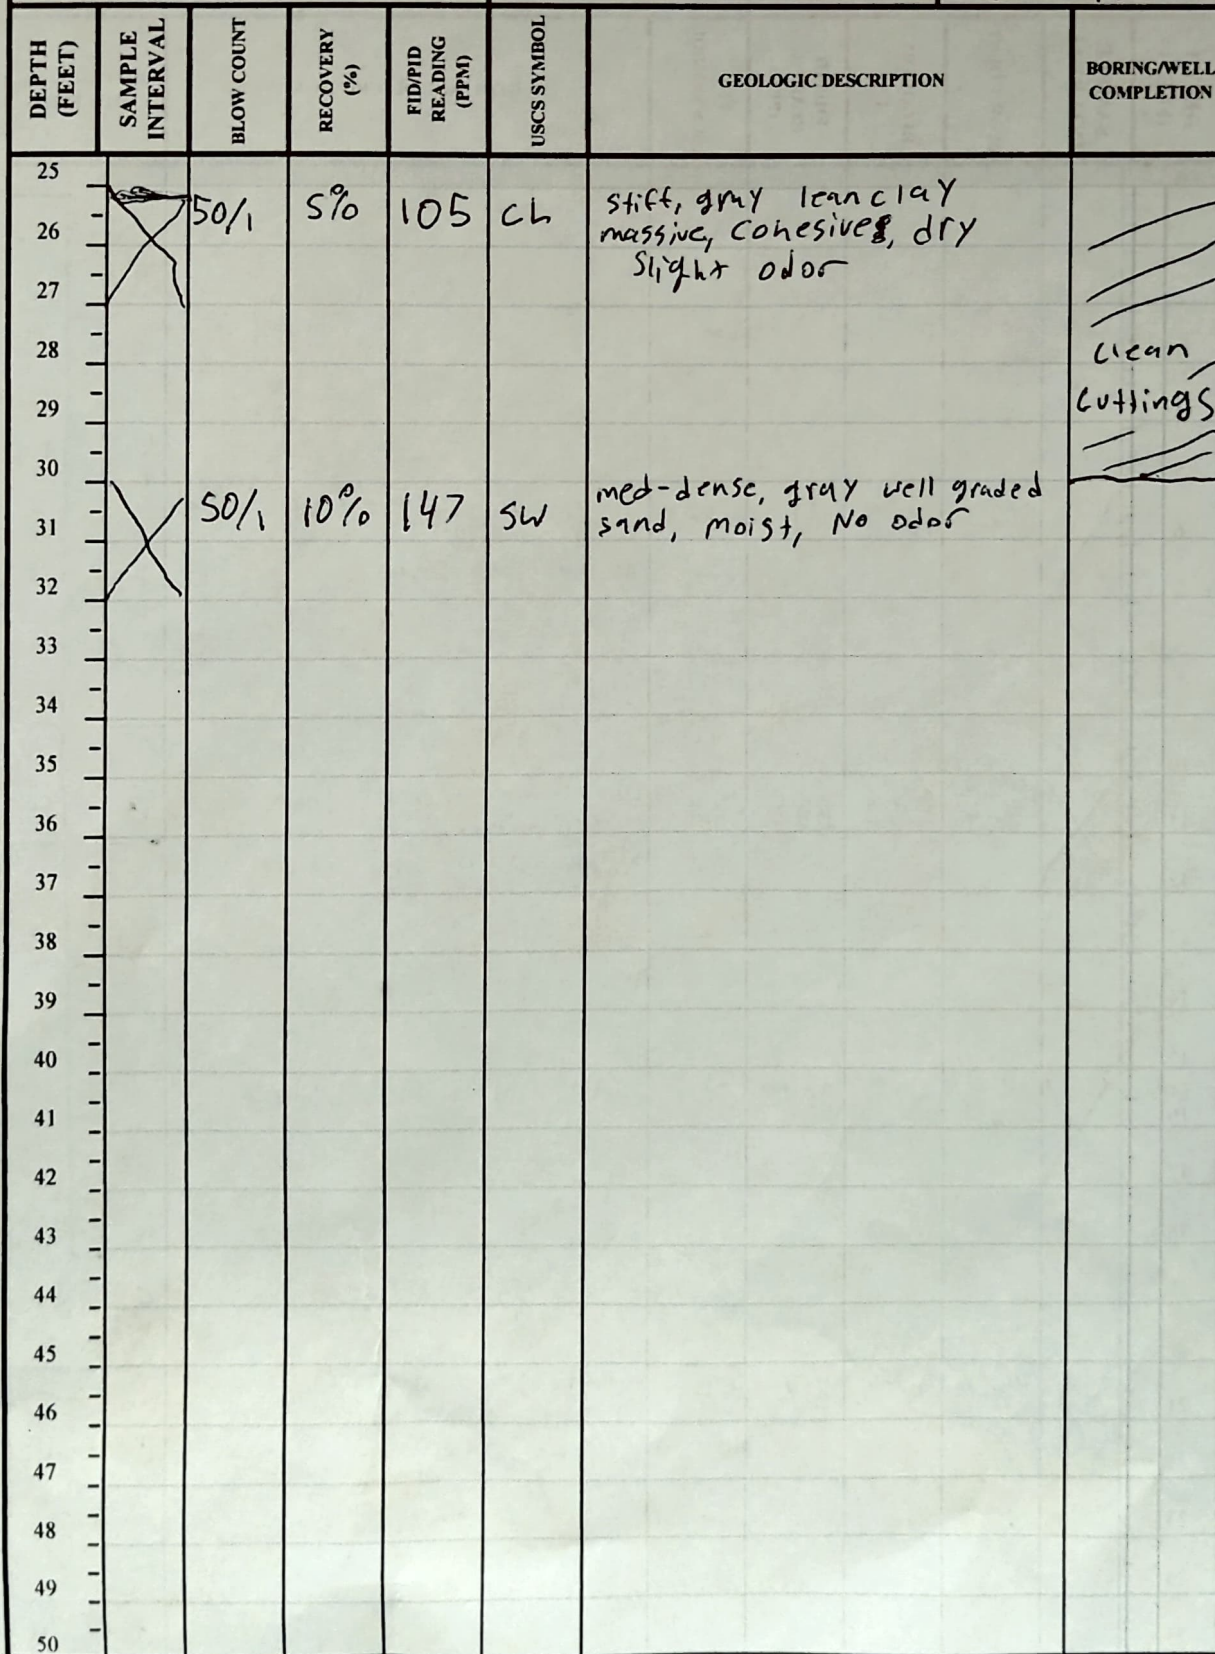 DEPTH (FEET)
SAMPLE INTERVAL
BLOW COUNT
RECOVERY (%)
FID/PID READING (PPM)
USCS SYMBOL
GEOLOGIC DESCRIPTION
BORING/WELL COMPLETION
25
50/1 5% 105 CL stiff, gray lean clay
26 massive, cohesive, dry
slight odor
27
28 clean
29 cuttings
30
50/1 10% 147 SW med-dense, gray well graded
31 sand, moist, No odor
32
33
34
35
36
37
38
39
40
41
42
43
44
45
46
47
48
49
50